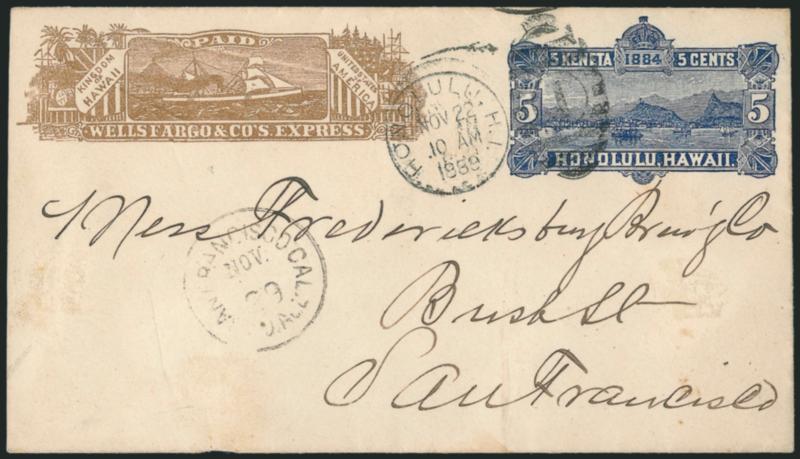 PAID
KINGDOM OF HAWAII
UNITED STATES AMERICA
WELLS FARGO & CO'S. EXPRESS
5 KENETA 1884 5 CENTS
5 5
HONOLULU, HAWAII.
HONOLULU, H.I.
NOV 22
10 AM
1889
Mess Fredericksburg Brew'g Co
Bush St
San Francisco
SAN FRANCISCO CAL.
NOV.